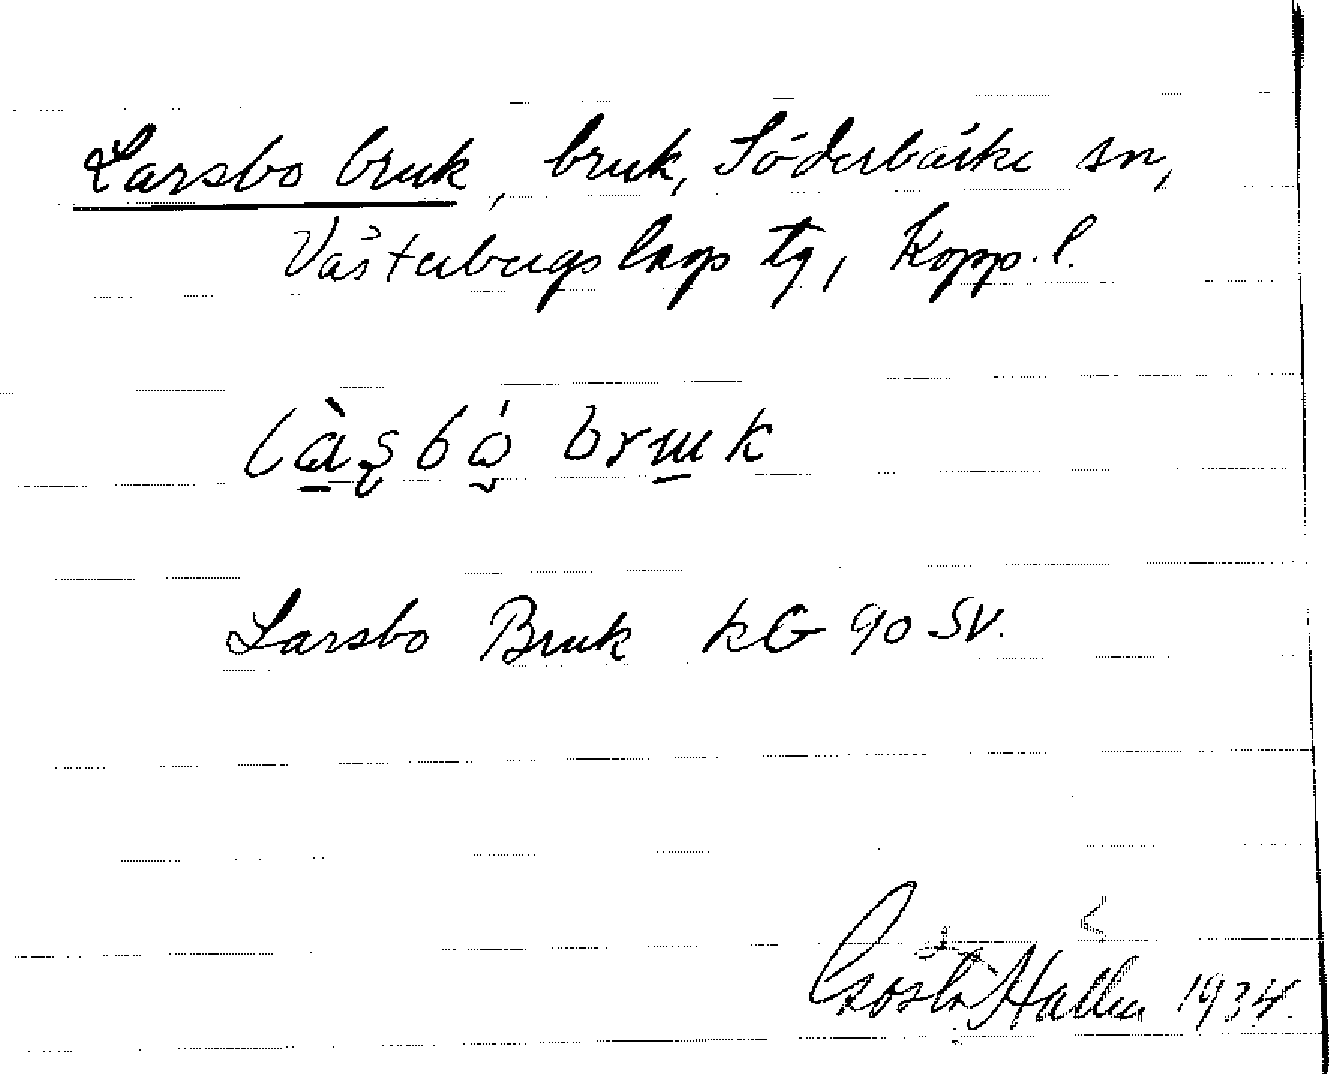 Larsbo bruk, bruk, Söderbärke sn,
Västerbergslags tg, Kopp. l.
bruk
Larsbo Bruk KG 90 SV.
Gösta Hallén 1934.